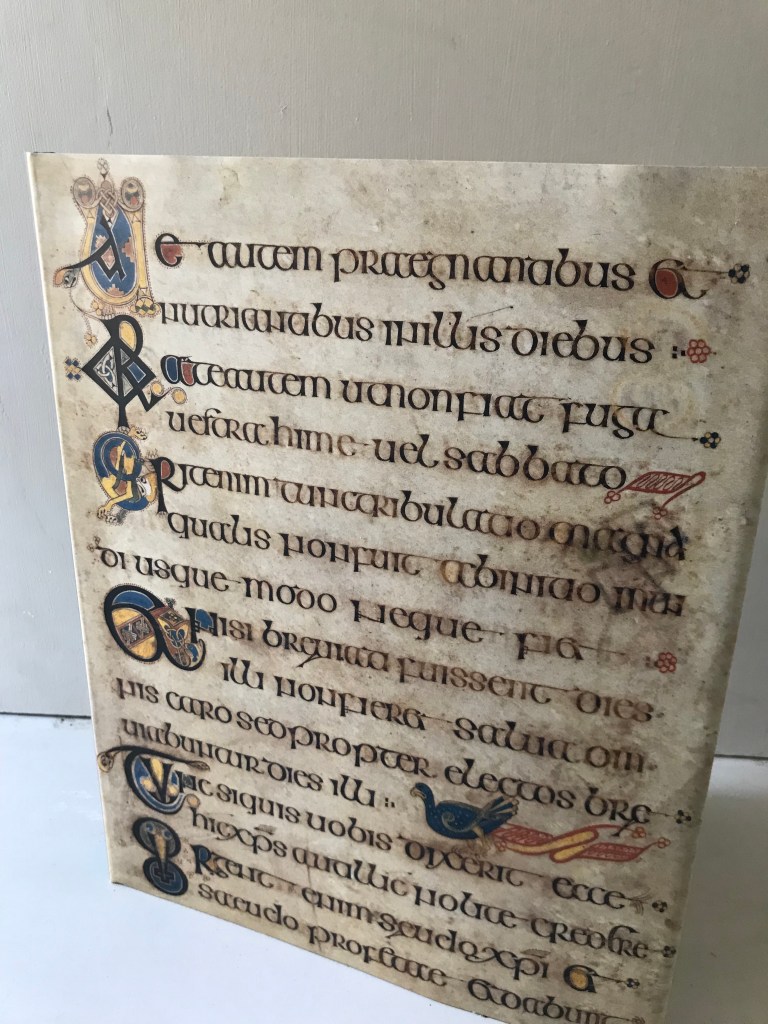 Uae autem praegnantibus et
nutrientibus inillis diebus
Orate autem utnonfiat fuga
uestra hieme uel sabbato
Erit enim tunc tribulatio magna
qualis nonfuit abinitio mun
di usque modo neque fiet
Et nisi breuiati fuissent dies
illi nonfieret salua om
nis caro sed propter electos bre
uiabuntur dies illi
Tunc siquis uobis dixerit ecce
hic xps aut illic nolite credere
Surgent enim seudo xpi et
seudo profetae et dabunt